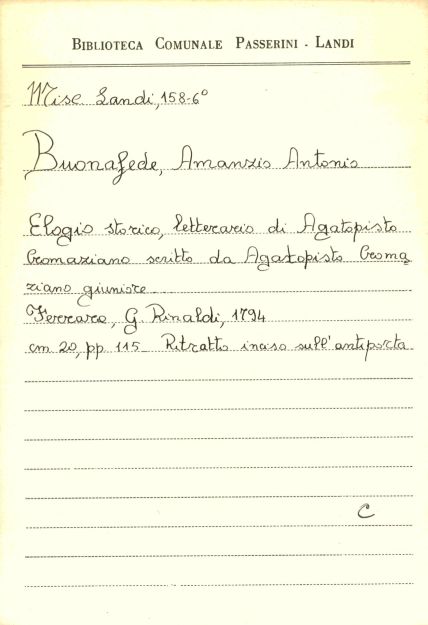 BIBLIOTECA COMUNALE PASSERINI - LANDI
Misc. Landi, 158-6°
Buonafede, Amanzio Antonio
Elogio storico, letterario di Agatopisto
Cromaziano scritto da Agatopisto Croma
ziano giuniore
Ferrara, G. Rinaldi, 1794
cm 20, pp 115 Ritratto inciso sull'antiporta
C